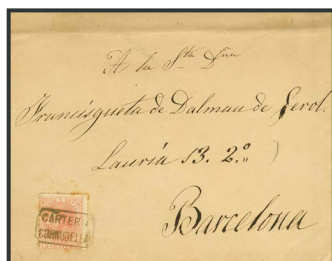 A la Sta Dña
Francisqueta de Dalmau de Ferol.
Lauria 13. 2º
Barcelona
CARTERIA
CORNUDELLA